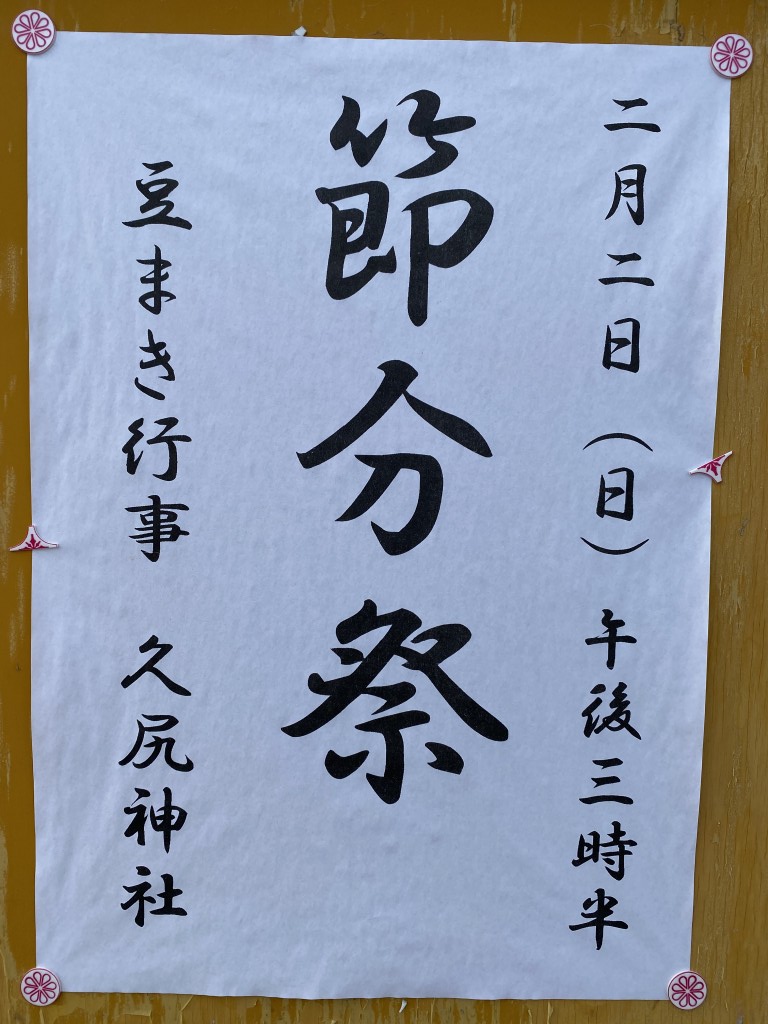 二月二日（日）午後三時半
節分祭
豆まき行事 久尻神社